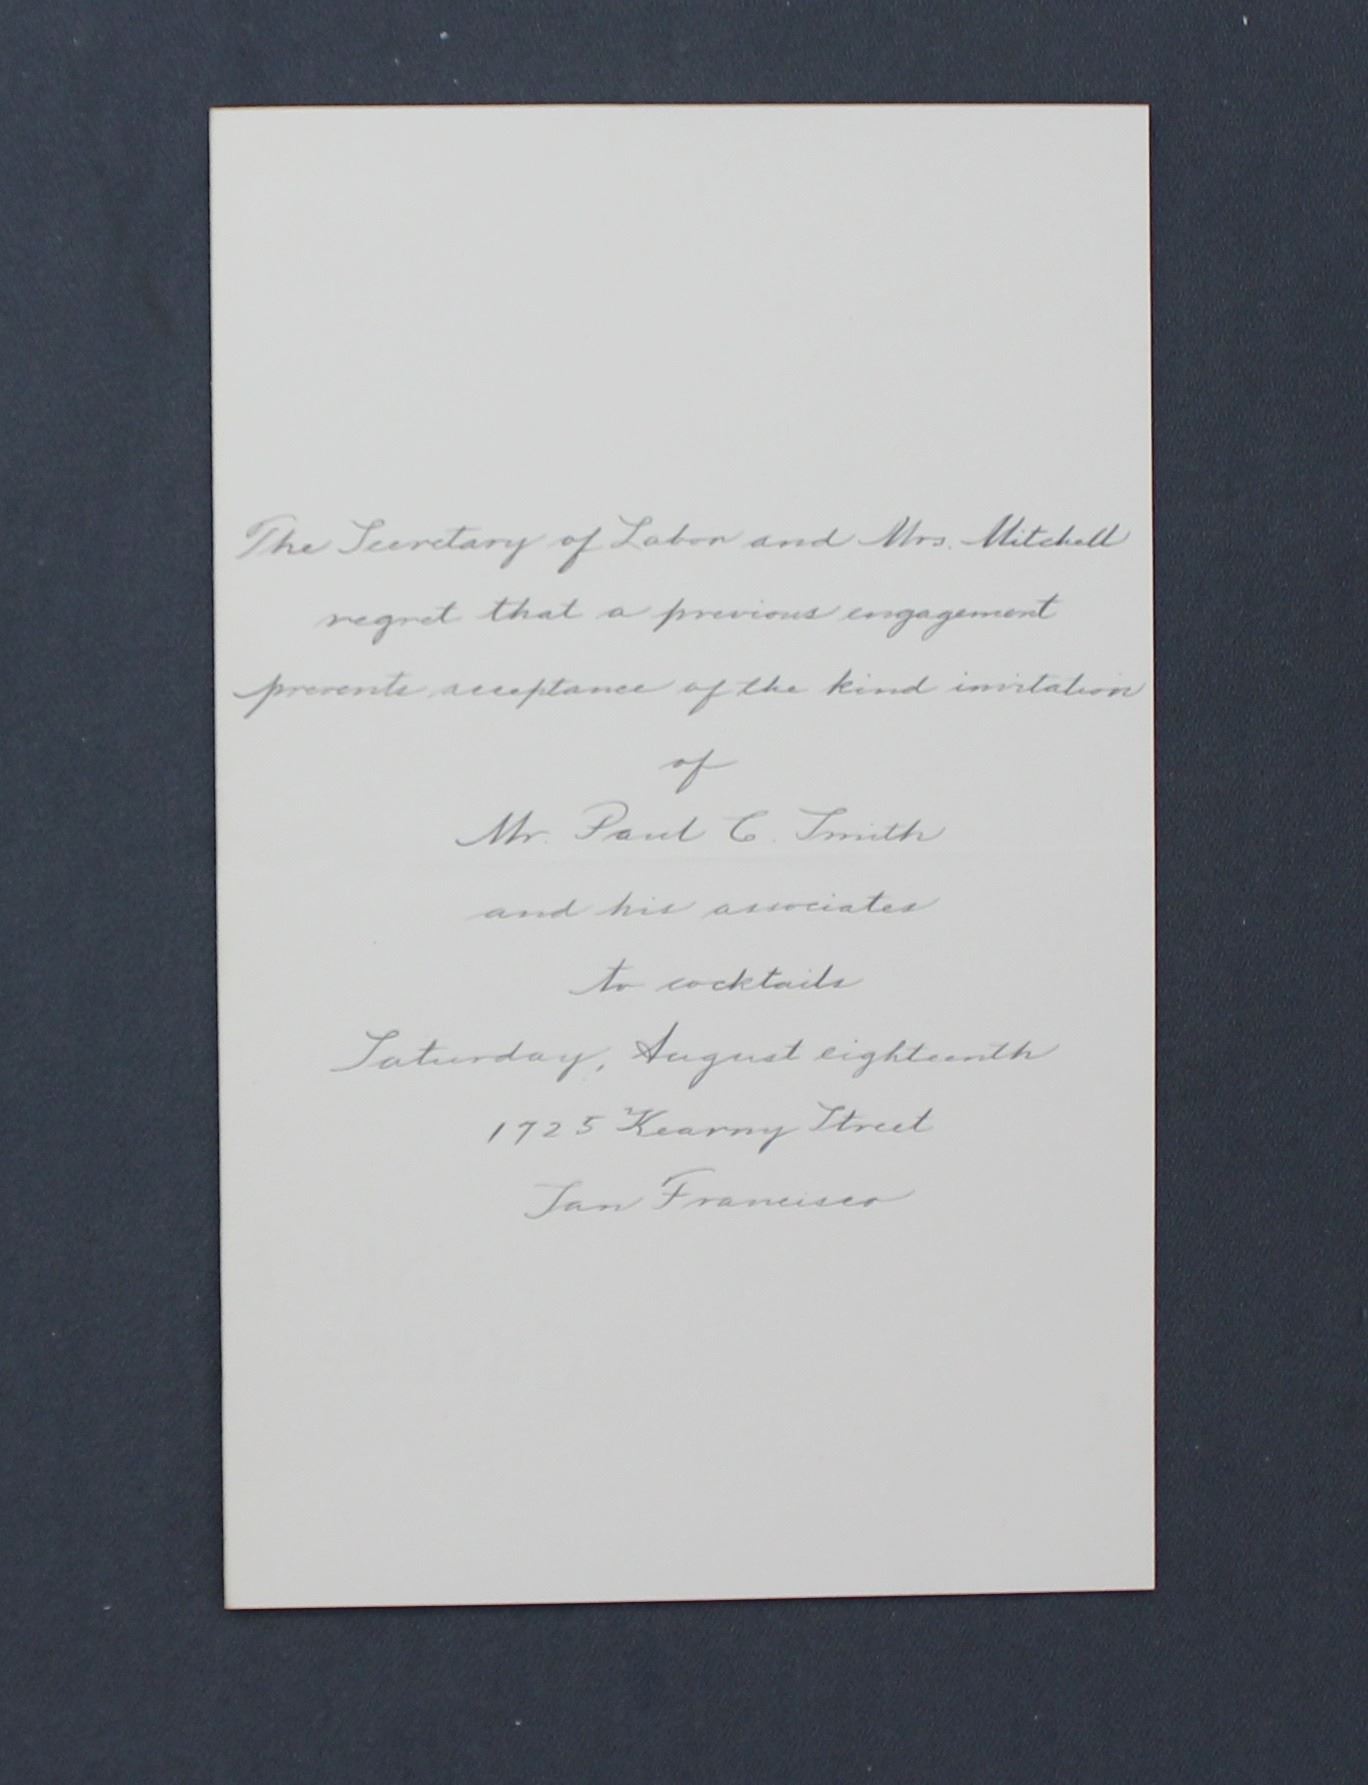 The Secretary of Labor and Mrs. Mitchell
regret that a previous engagement
prevents acceptance of the kind invitation
of
Mr. Paul C. Smith
and his associates
to cocktails
Saturday, August eighteenth
1725 Kearny Street
San Francisco